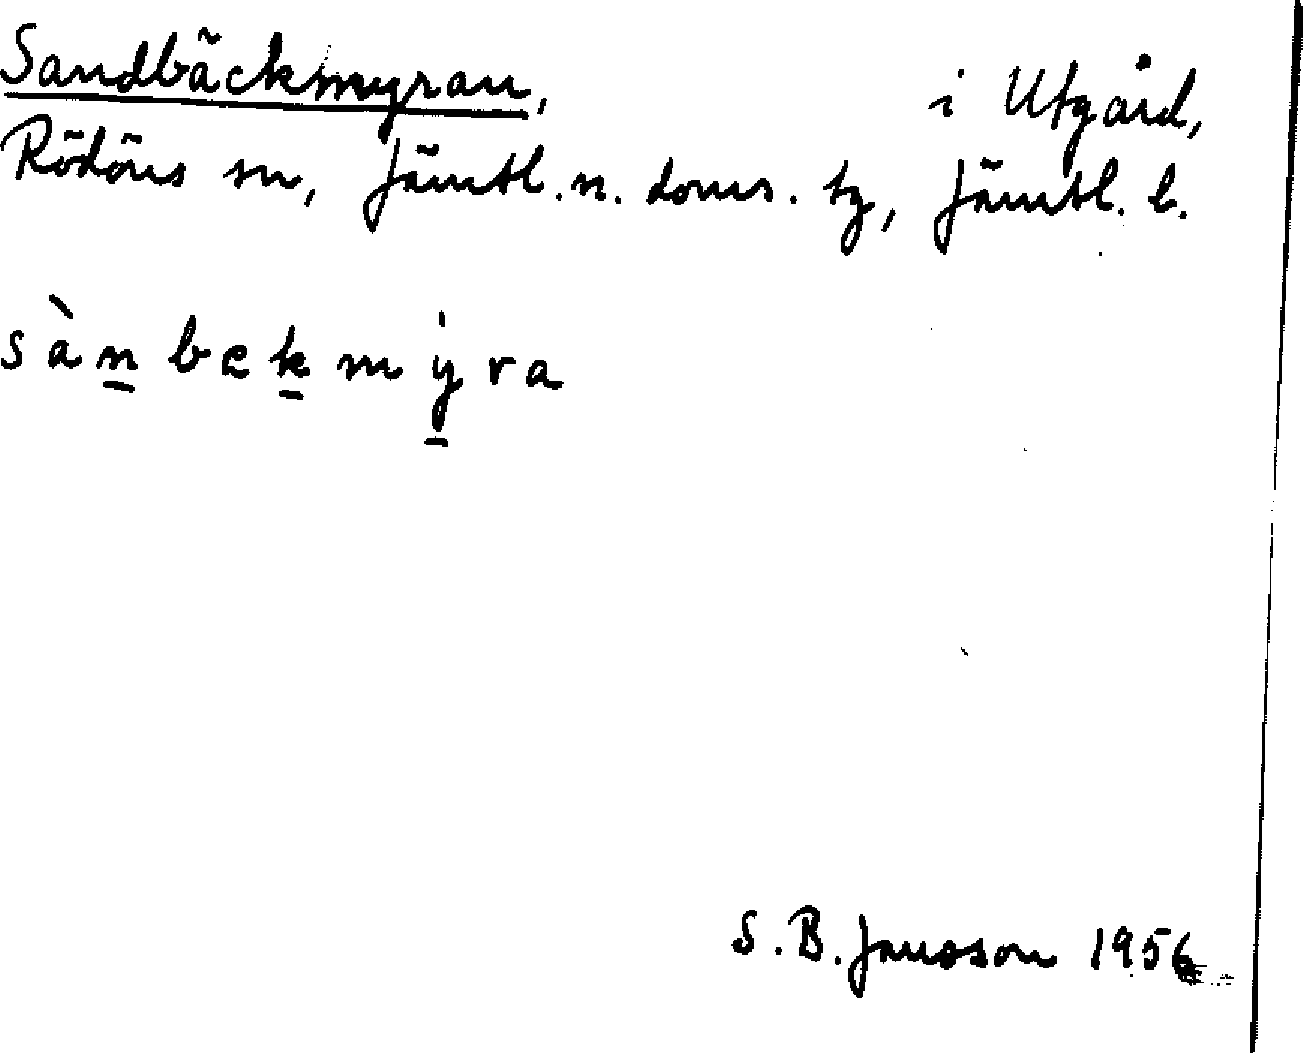 Sandbäckmyran, i Utgård,
Rödöns sn, Jämtl. n. doms. tg, Jämtl. l.
sànbekmỳra
S. B. Jansson 1956